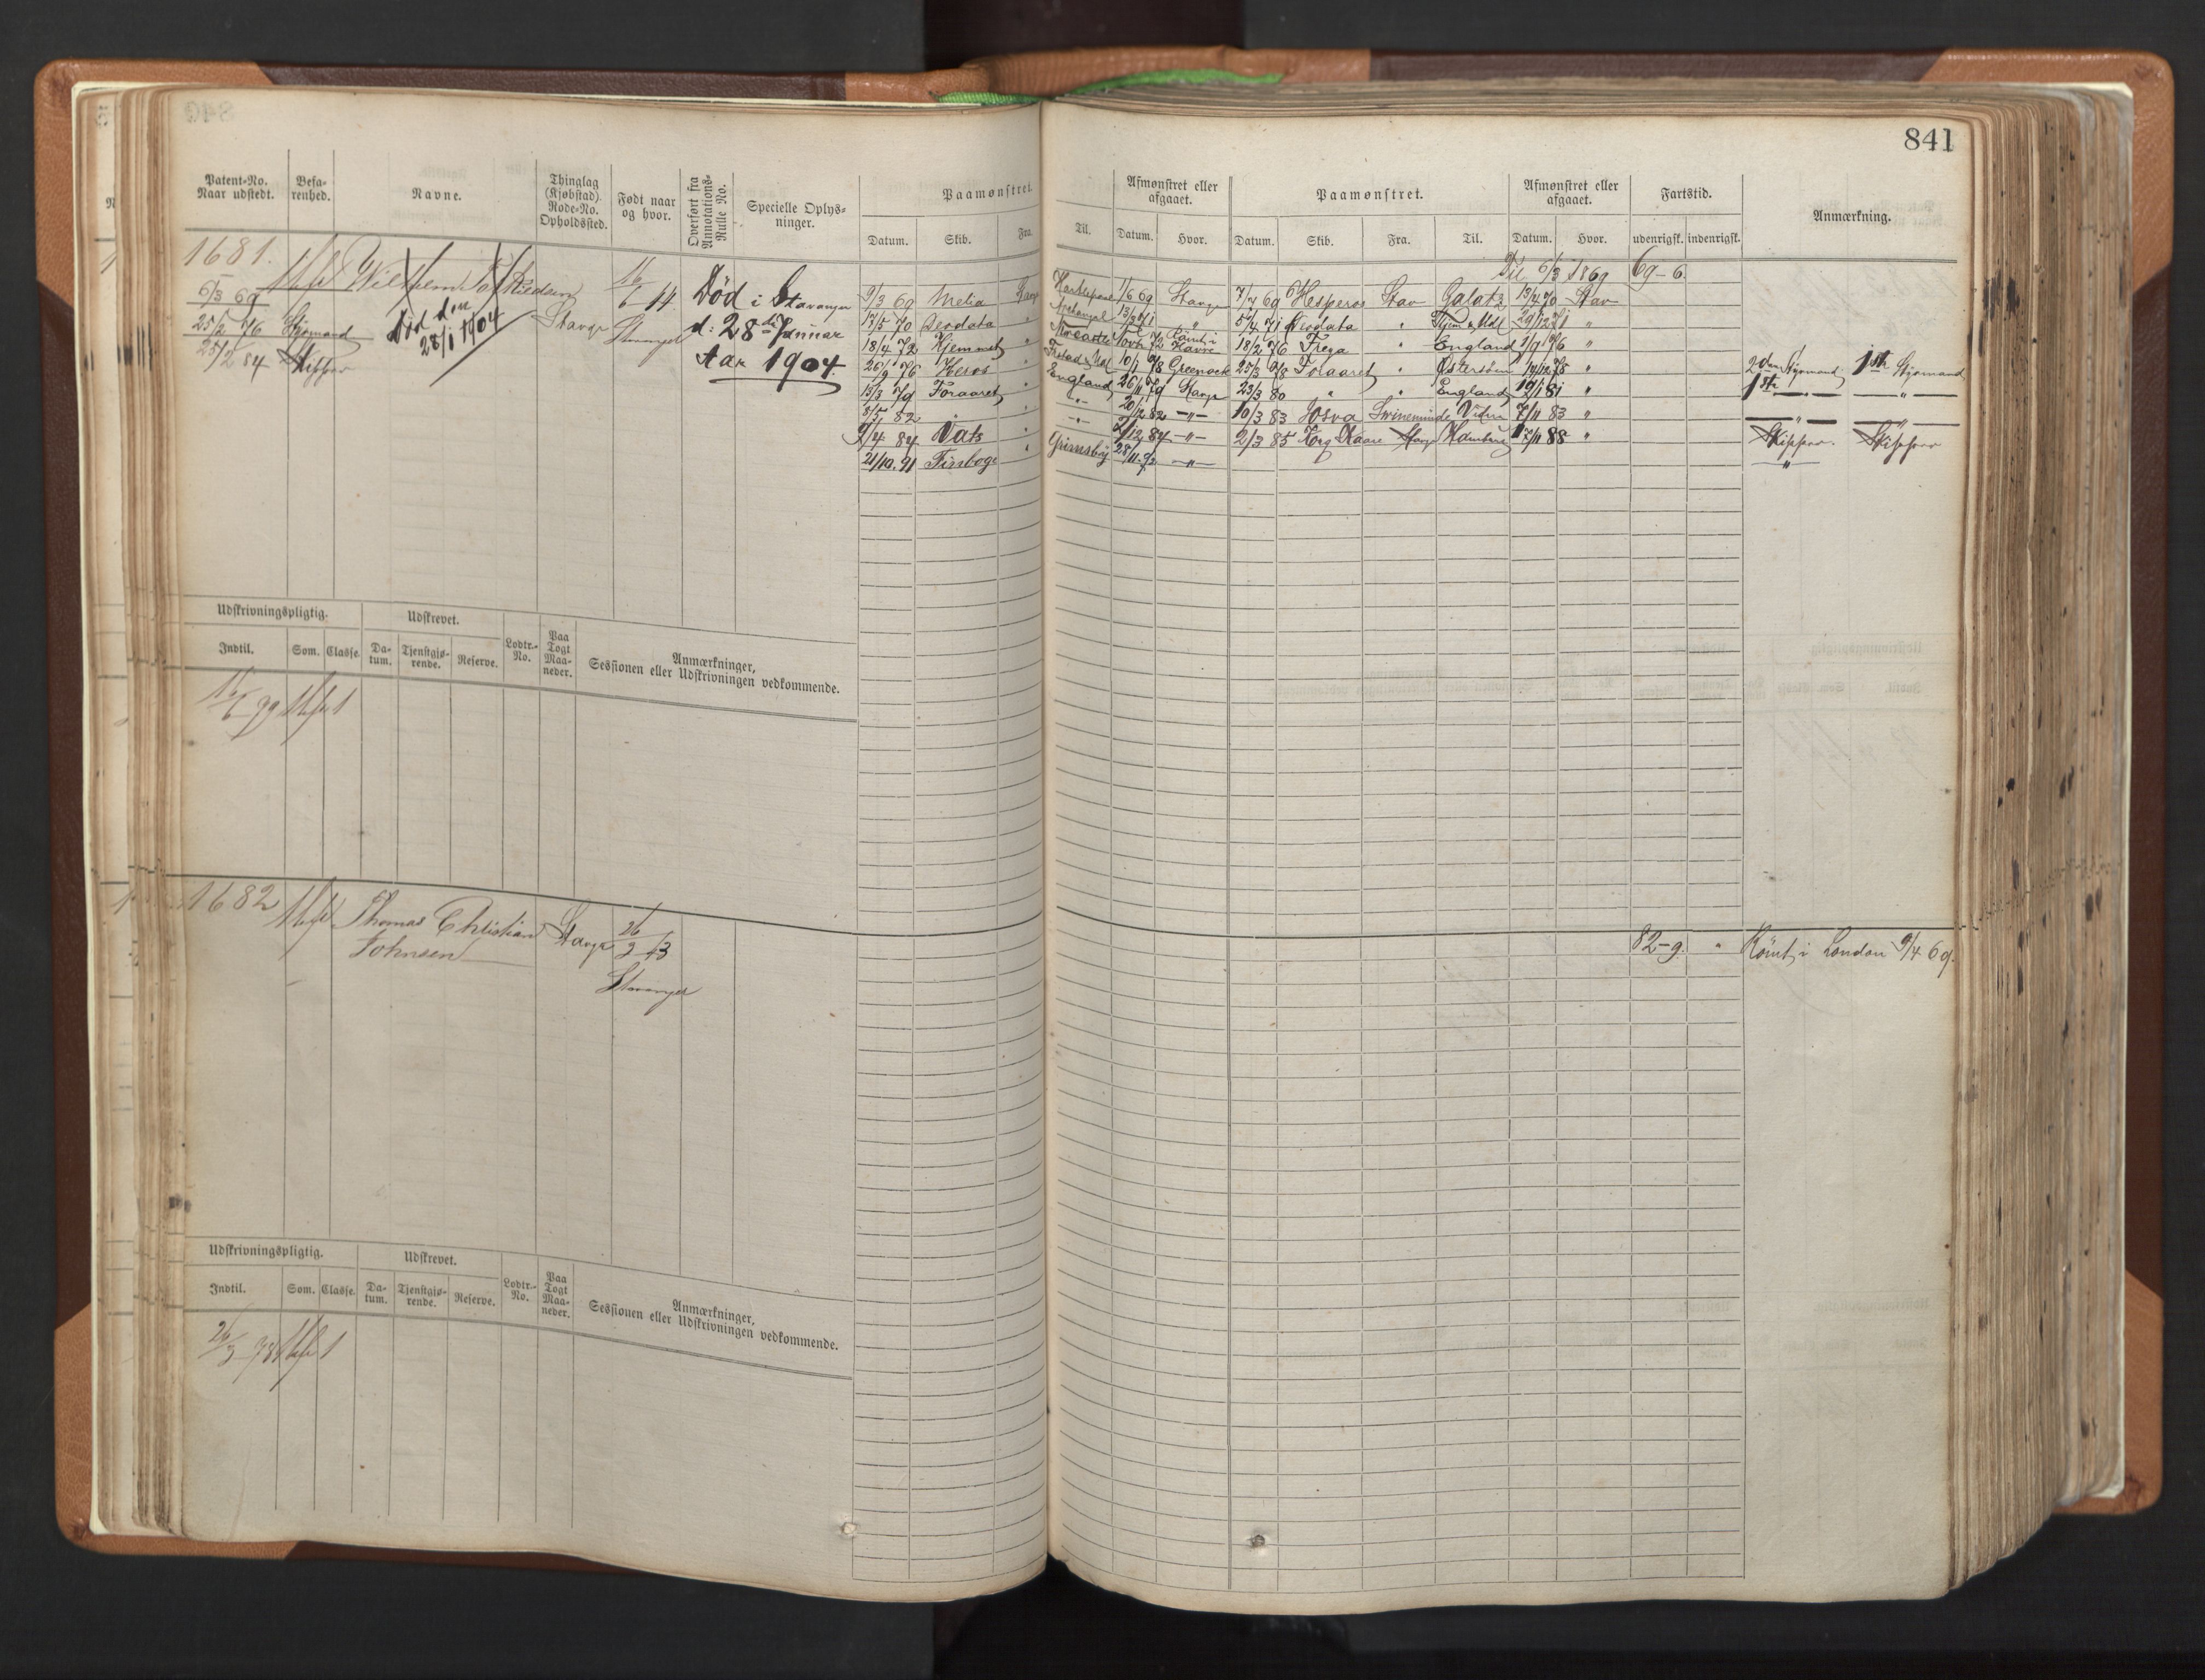 841
Patent-No. Naar udstedt.
Befa-
renhed.
Navne.
Thinglag
(Kjøbstad)
Rode-No.
Opholdssted.
Født naar
og hvor.
Overført fra
Annotations-
Rulle No.
Specielle Oplys-
ninger.
Paamønstret.
Datum. Skib. Fra.
Til.
Afmønstret eller
afgaaet.
Datum. Hvor.
Paamønstret.
Datum. Skib. Fra. Til.
Afmønstret eller
afgaaet.
Datum. Hvor.
Fartstid.
udenrigsk. indenrigsk.
Anmærkning.
1681.
6/3 69
25/2 76 Styrmand
25/2 84 Skipper
Wilhelm
Død den
28/1 1904
Stavgr
16/6 44
Stavanger
Død i Stavanger
d: 28de Januar
Aar 1904.
Til 6/3 1869 69-6
9/3 69 Melia Stavgr 1/6 69 Stavgr 7/7 69 Hesperos Stav Galatz 13/4 70 Stav
17/5 70 Deodata " " 5/4 71 Deodata " 29/12 71 "
18/4 72 Hjemmet " Rømt i Havre 18/2 76 Freya " England 1/9 76 "
26/9 76 Heros " 10/1 78 Greenock 25/3 78 Foraaret " Østersøen 14/12 78 " 2den Styrmand 1ste Styrmand
15/3 79 Foraaret " England 26/11 79 Stavgr 23/3 80 " " England 19/1 81 " 1ste — " —
8/5 82 " " — " — 20/12 82 — " — 10/3 83 Josva Swinemünde 7/11 83 " — " — — " —
9/4 84 Vats " — " — 2/12 84 — " — 2/3 85 Kong Kaare Stavgr 17/11 88 " Skipper. Skipper
21/10. 91 Finboge " Grimsby 28/11. 92 — " — — " —
Udskrivningspligtig.
Indtil. Som. Classe.
Udskrevet.
Da-
tum.
Tjenstgjø-
rende.
Reserve.
Lodtr.-
No.
Paa
Togt
Maa-
neder.
Anmærkninger,
Sessionen eller Udskrivningen vedkommende.
16/6 99 1
1682 Thomas Christian Stavgr 26/3 43
Johnsen
Stavanger
82-9. " Rømt i London 9/4 69.
Udskrivningspligtig.
Indtil. Som. Classe.
Udskrevet.
Da-
tum.
Tjenstgjø-
rende.
Reserve.
Lodtr.-
No.
Paa
Togt
Maa-
neder.
Anmærkninger,
Sessionen eller Udskrivningen vedkommende.
26/3 78 1